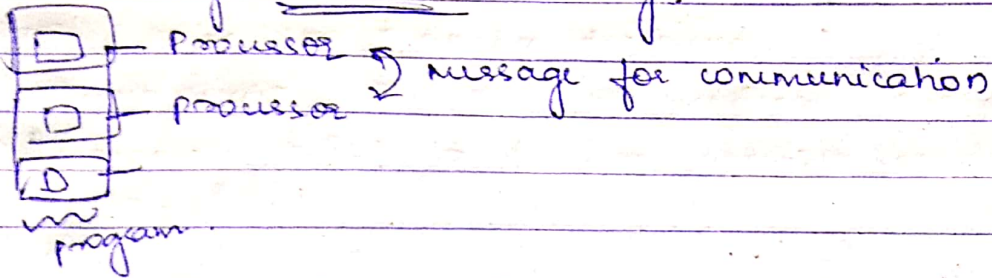 Processor
message for communication
processor
D
program